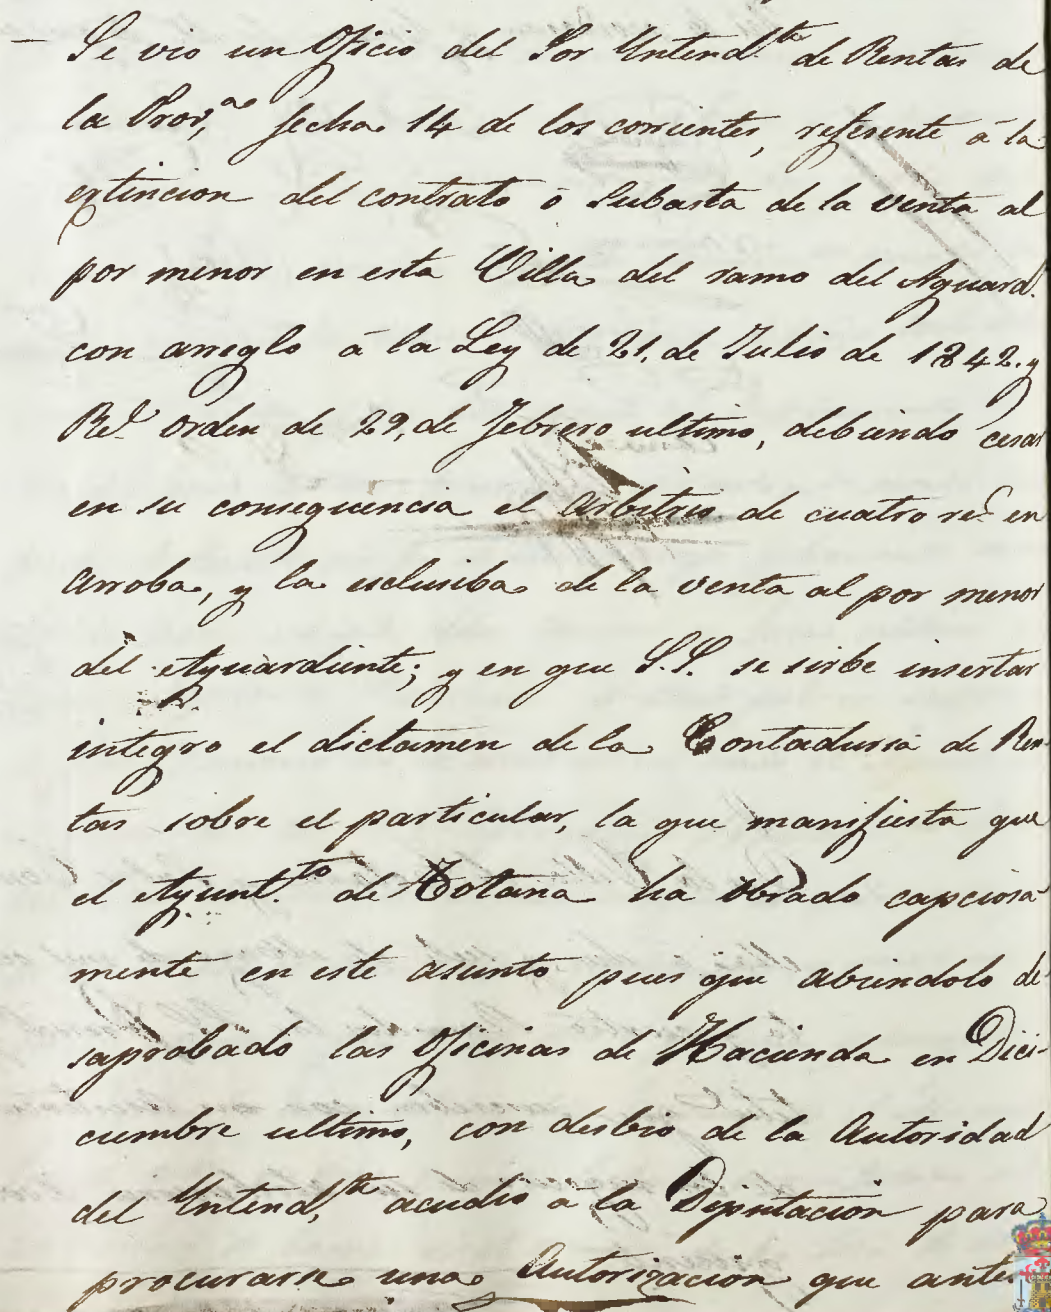 Se vio un Oficio del Sor Yntend.te de Rentas de
la Prov,a fecha 14 de los corrientes, referente á la
extincion del contrato ó Subasta de la venta al
por menor en esta Villa del ramo del Aguard.
con arreglo á la Ley de 21, de Julio de 1842. y
Rl. orden de 29, de Febrero ultimo, debiendo cesar
en su consequencia el arbitrio de cuatro rs. en
arroba, y la esclusiba de la venta al por menor
del Aguardiente; y en que S.S. se sirbe insertar
integro el dictamen de la Contaduria de Ren-
tas sobre el particular, la que manifiesta que
el Ayunt.to de Totana ha obrado capciosa
mente en este asunto pues que abiendolo de
saprobado las Oficinas de Hacienda en Dici-
cumbre ultimo, con desbio de la Autoridad
del Yntend,te acudio á la Diputacion para
procurarse una Autorizacion que antes